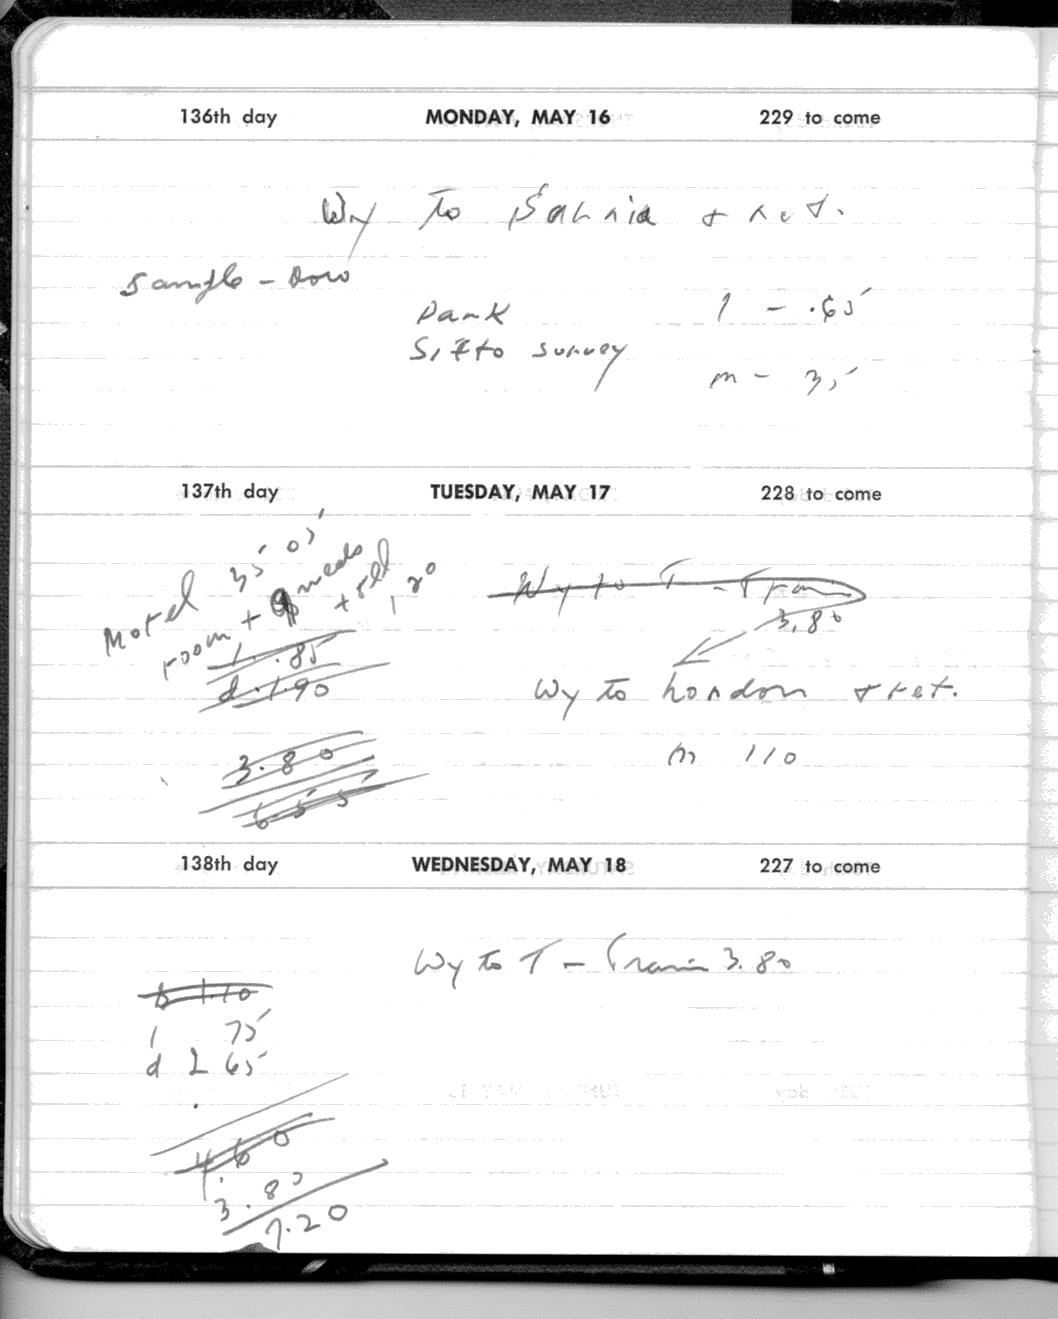 136th day MONDAY, MAY 16 229 to come
Wy to Sarnia + ret.
Sample - Dow
Park 1 - .65
Sifto survey
m - 35
137th day TUESDAY, MAY 17 228 to come
Motel 35 05
room + meals + tel 1 20
Wy to T - Train
3.80
l .85
d. 1.90
Wy to London + ret.
m 110
3.80
6 55
138th day WEDNESDAY, MAY 18 227 to come
Wy to T - Train 3.80
b 1.10
l 75
d 2 65
4.60
3.80
7.20